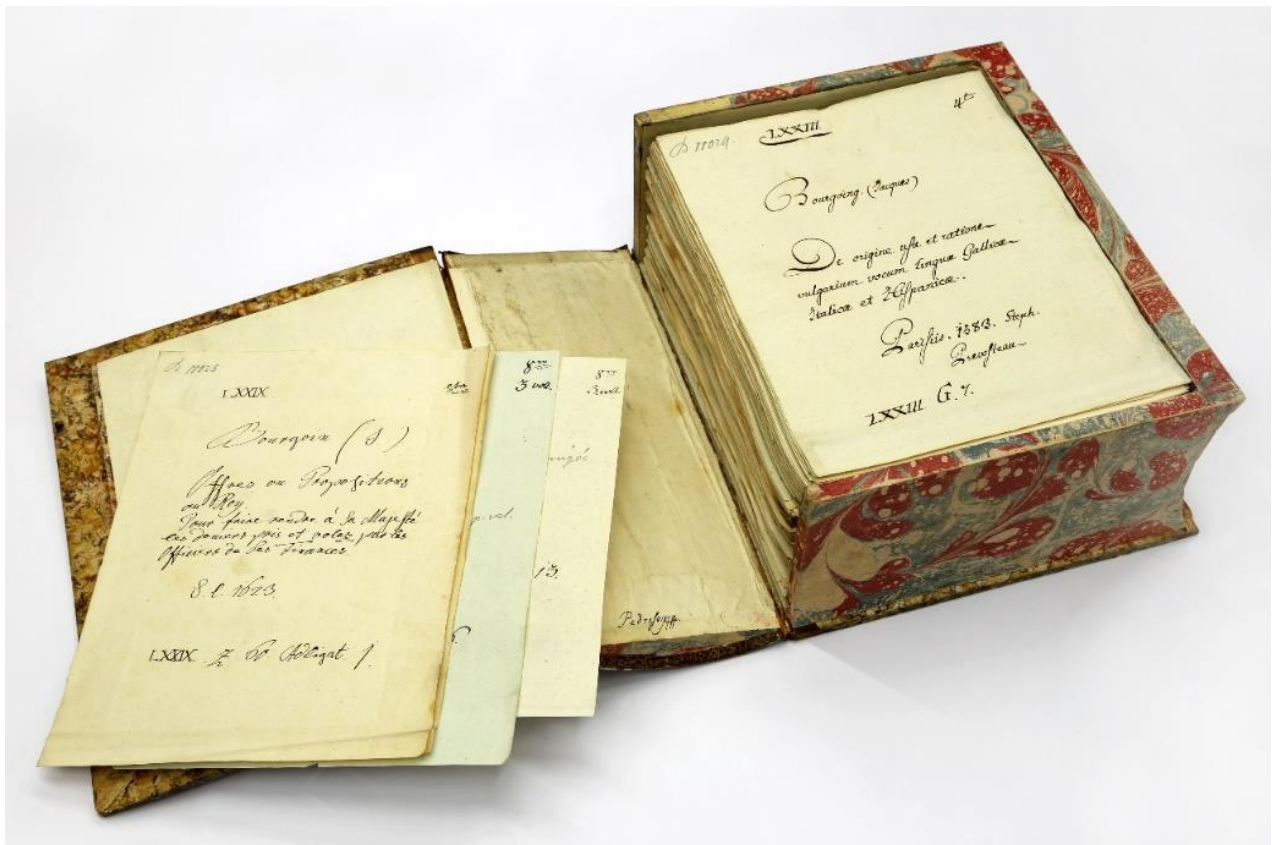 LXXIII
4to
Bourgoing. (Jacques)
De origine usu et ratione
vulgarium vocum linguæ Gallicæ
Italicæ et Hispanicæ.
Parisiis. 1583. Steph.
Prevosteau
LXXIII G. 7.
LXXIX
Bourgoin (S)
Offres ou Propositions
au Roy
Pour faire rendre à Sa Majesté
les deniers pris et volez par les
Officiers de Ses Finances
S. l. 1623.
LXXIX Z 60 Adligat 1.
8vo
3 vol.
8vo
3 vol.
13.